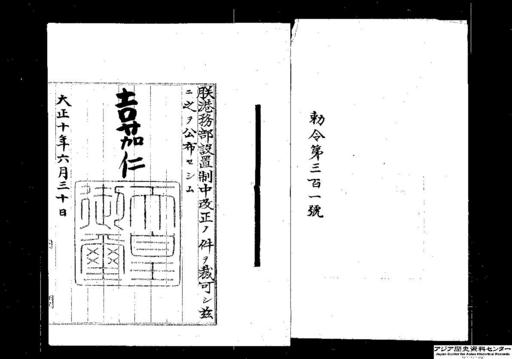 勅令第三百一號
朕港務部設置制中改正ノ件ヲ裁可シ茲
ニ之ヲ公布セシム
嘉仁
天皇御璽
大正十年六月三十日
アジア歴史資料センター
Japan Center for Asian Historical Records